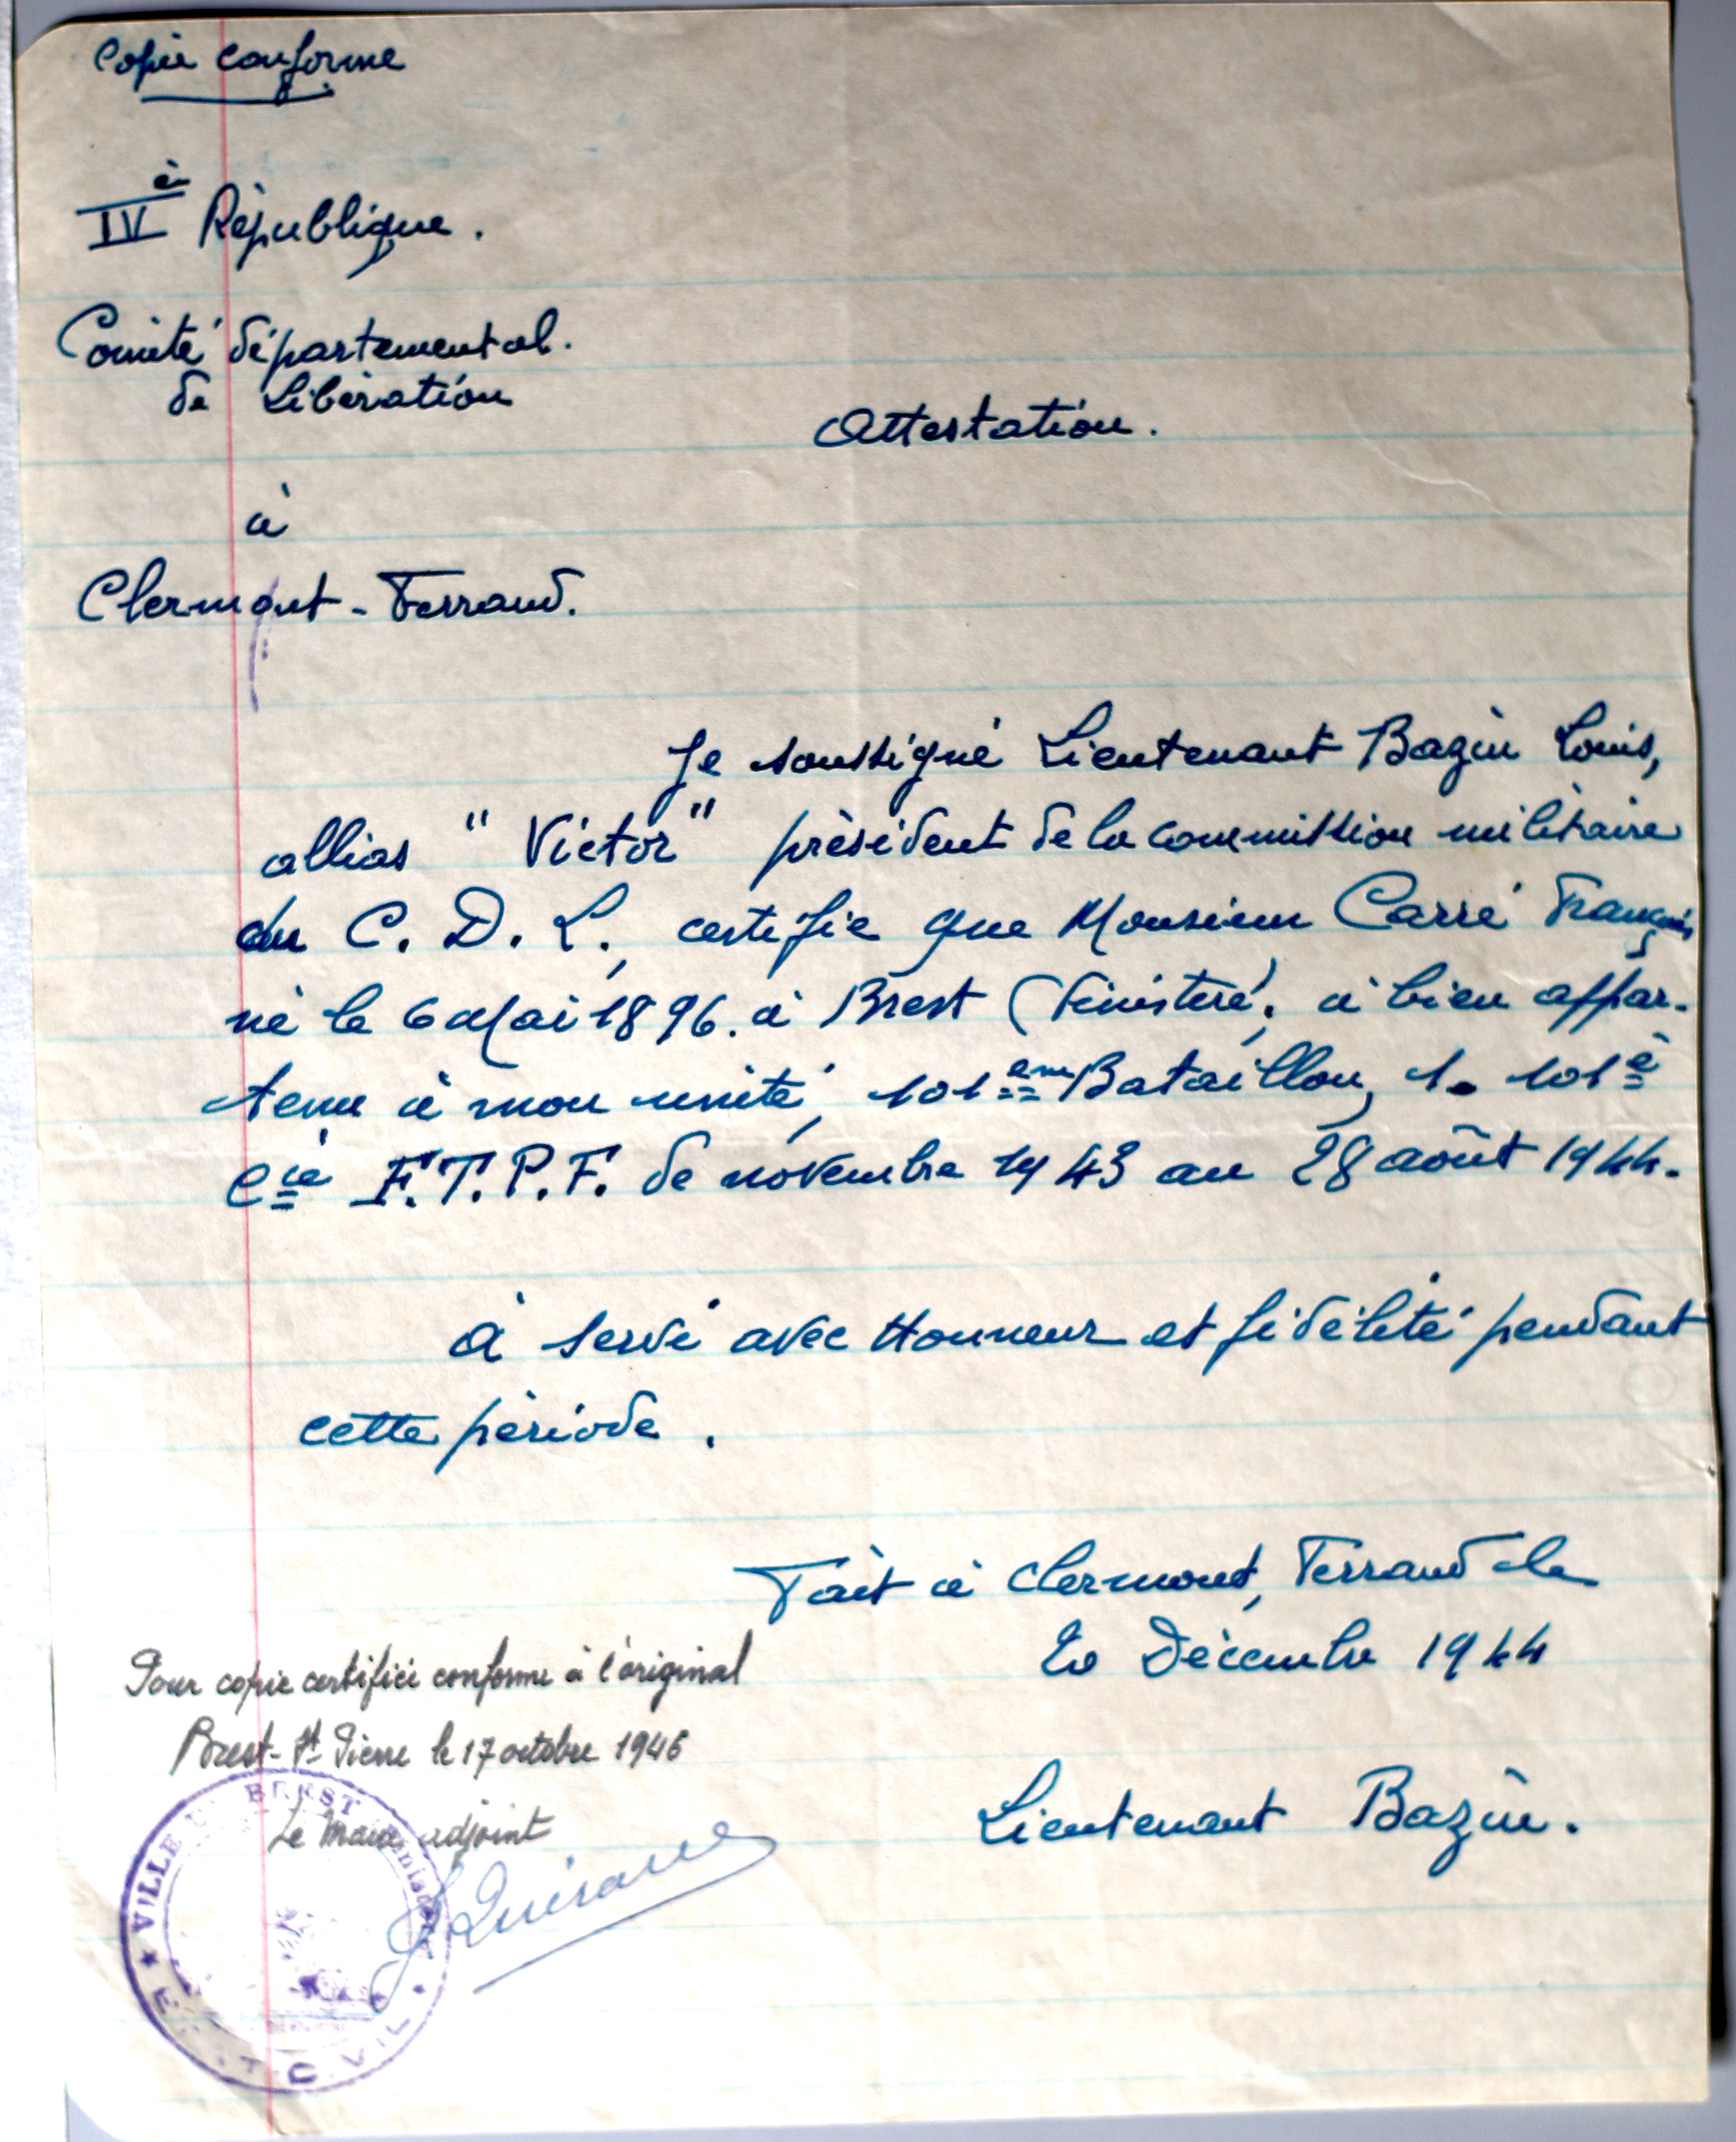 Copie conforme
IVè République.
Comité départemental.
de Libération
Attestation.
à
Clermont-Ferrand.
Je soussigné Lieutenant Bazin Louis,
allias "Victor" président de la commission militaire
du C. D. L., certifie que Monsieur Carré François
né le 6 Mai 1896. à Brest (Finistère, à bien appar-
tenu à mon unité, 101ème Bataillon, 1. 101è
Cie F.T.P.F. de novembre 1943 au 28 août 1944.
à servi avec Honneur et fidélité pendant
cette période.
Fait à Clermont, Ferrand le
20 Décembre 1944
Pour copie certifiée conforme à l'original
Brest-St Pierre le 17 octobre 1946
Le Maire adjoint
Lieutenant Bazin.
VILLE DE BREST
ETAT CIVIL